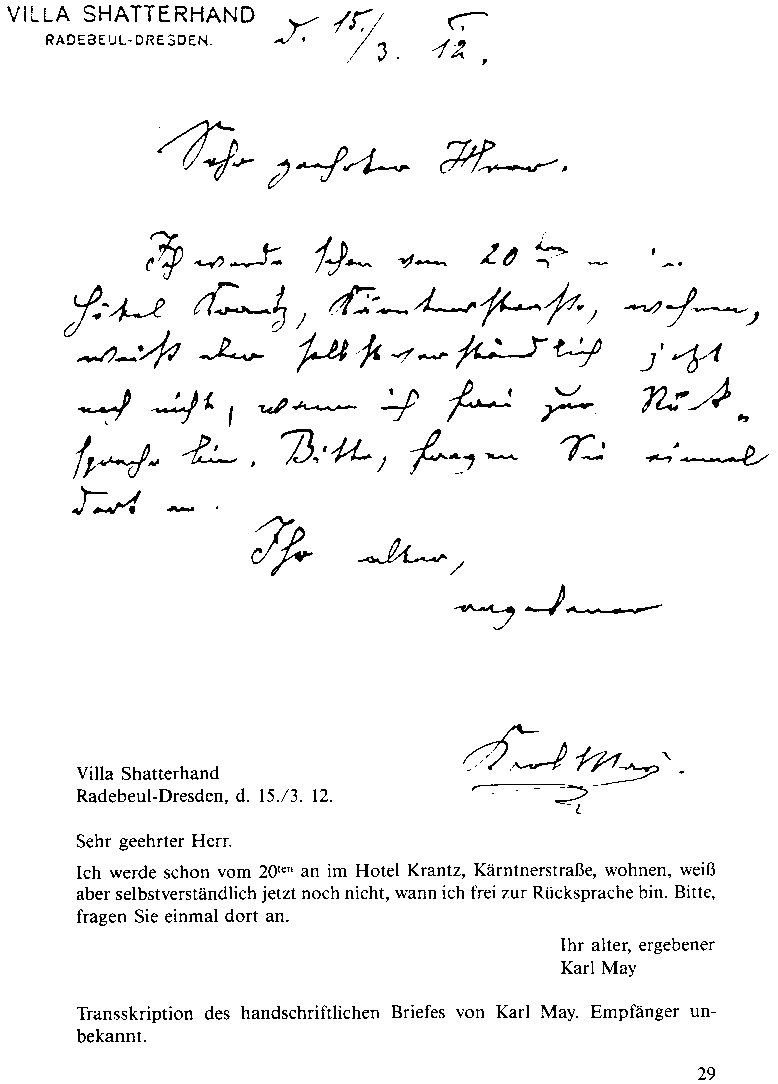 VILLA SHATTERHAND
RADEBEUL-DRESDEN.
d. 15./3. 12.
Sehr geehrter Herr.
Ich werde schon vom 20ten an im
Hôtel Krantz, Kärntnerstraße, wohnen,
weiß aber selbstverständlich jetzt
noch nicht, wann ich frei zur Rück„
sprache bin. Bitte, fragen Sie einmal
dort an.
Ihr alter,
ergebener
Karl May.
Villa Shatterhand
Radebeul-Dresden, d. 15./3. 12.
Sehr geehrter Herr.
Ich werde schon vom 20ten an im Hotel Krantz, Kärntnerstraße, wohnen, weiß
aber selbstverständlich jetzt noch nicht, wann ich frei zur Rücksprache bin. Bitte,
fragen Sie einmal dort an.
Ihr alter, ergebener
Karl May
Transskription des handschriftlichen Briefes von Karl May. Empfänger un-
bekannt.
29